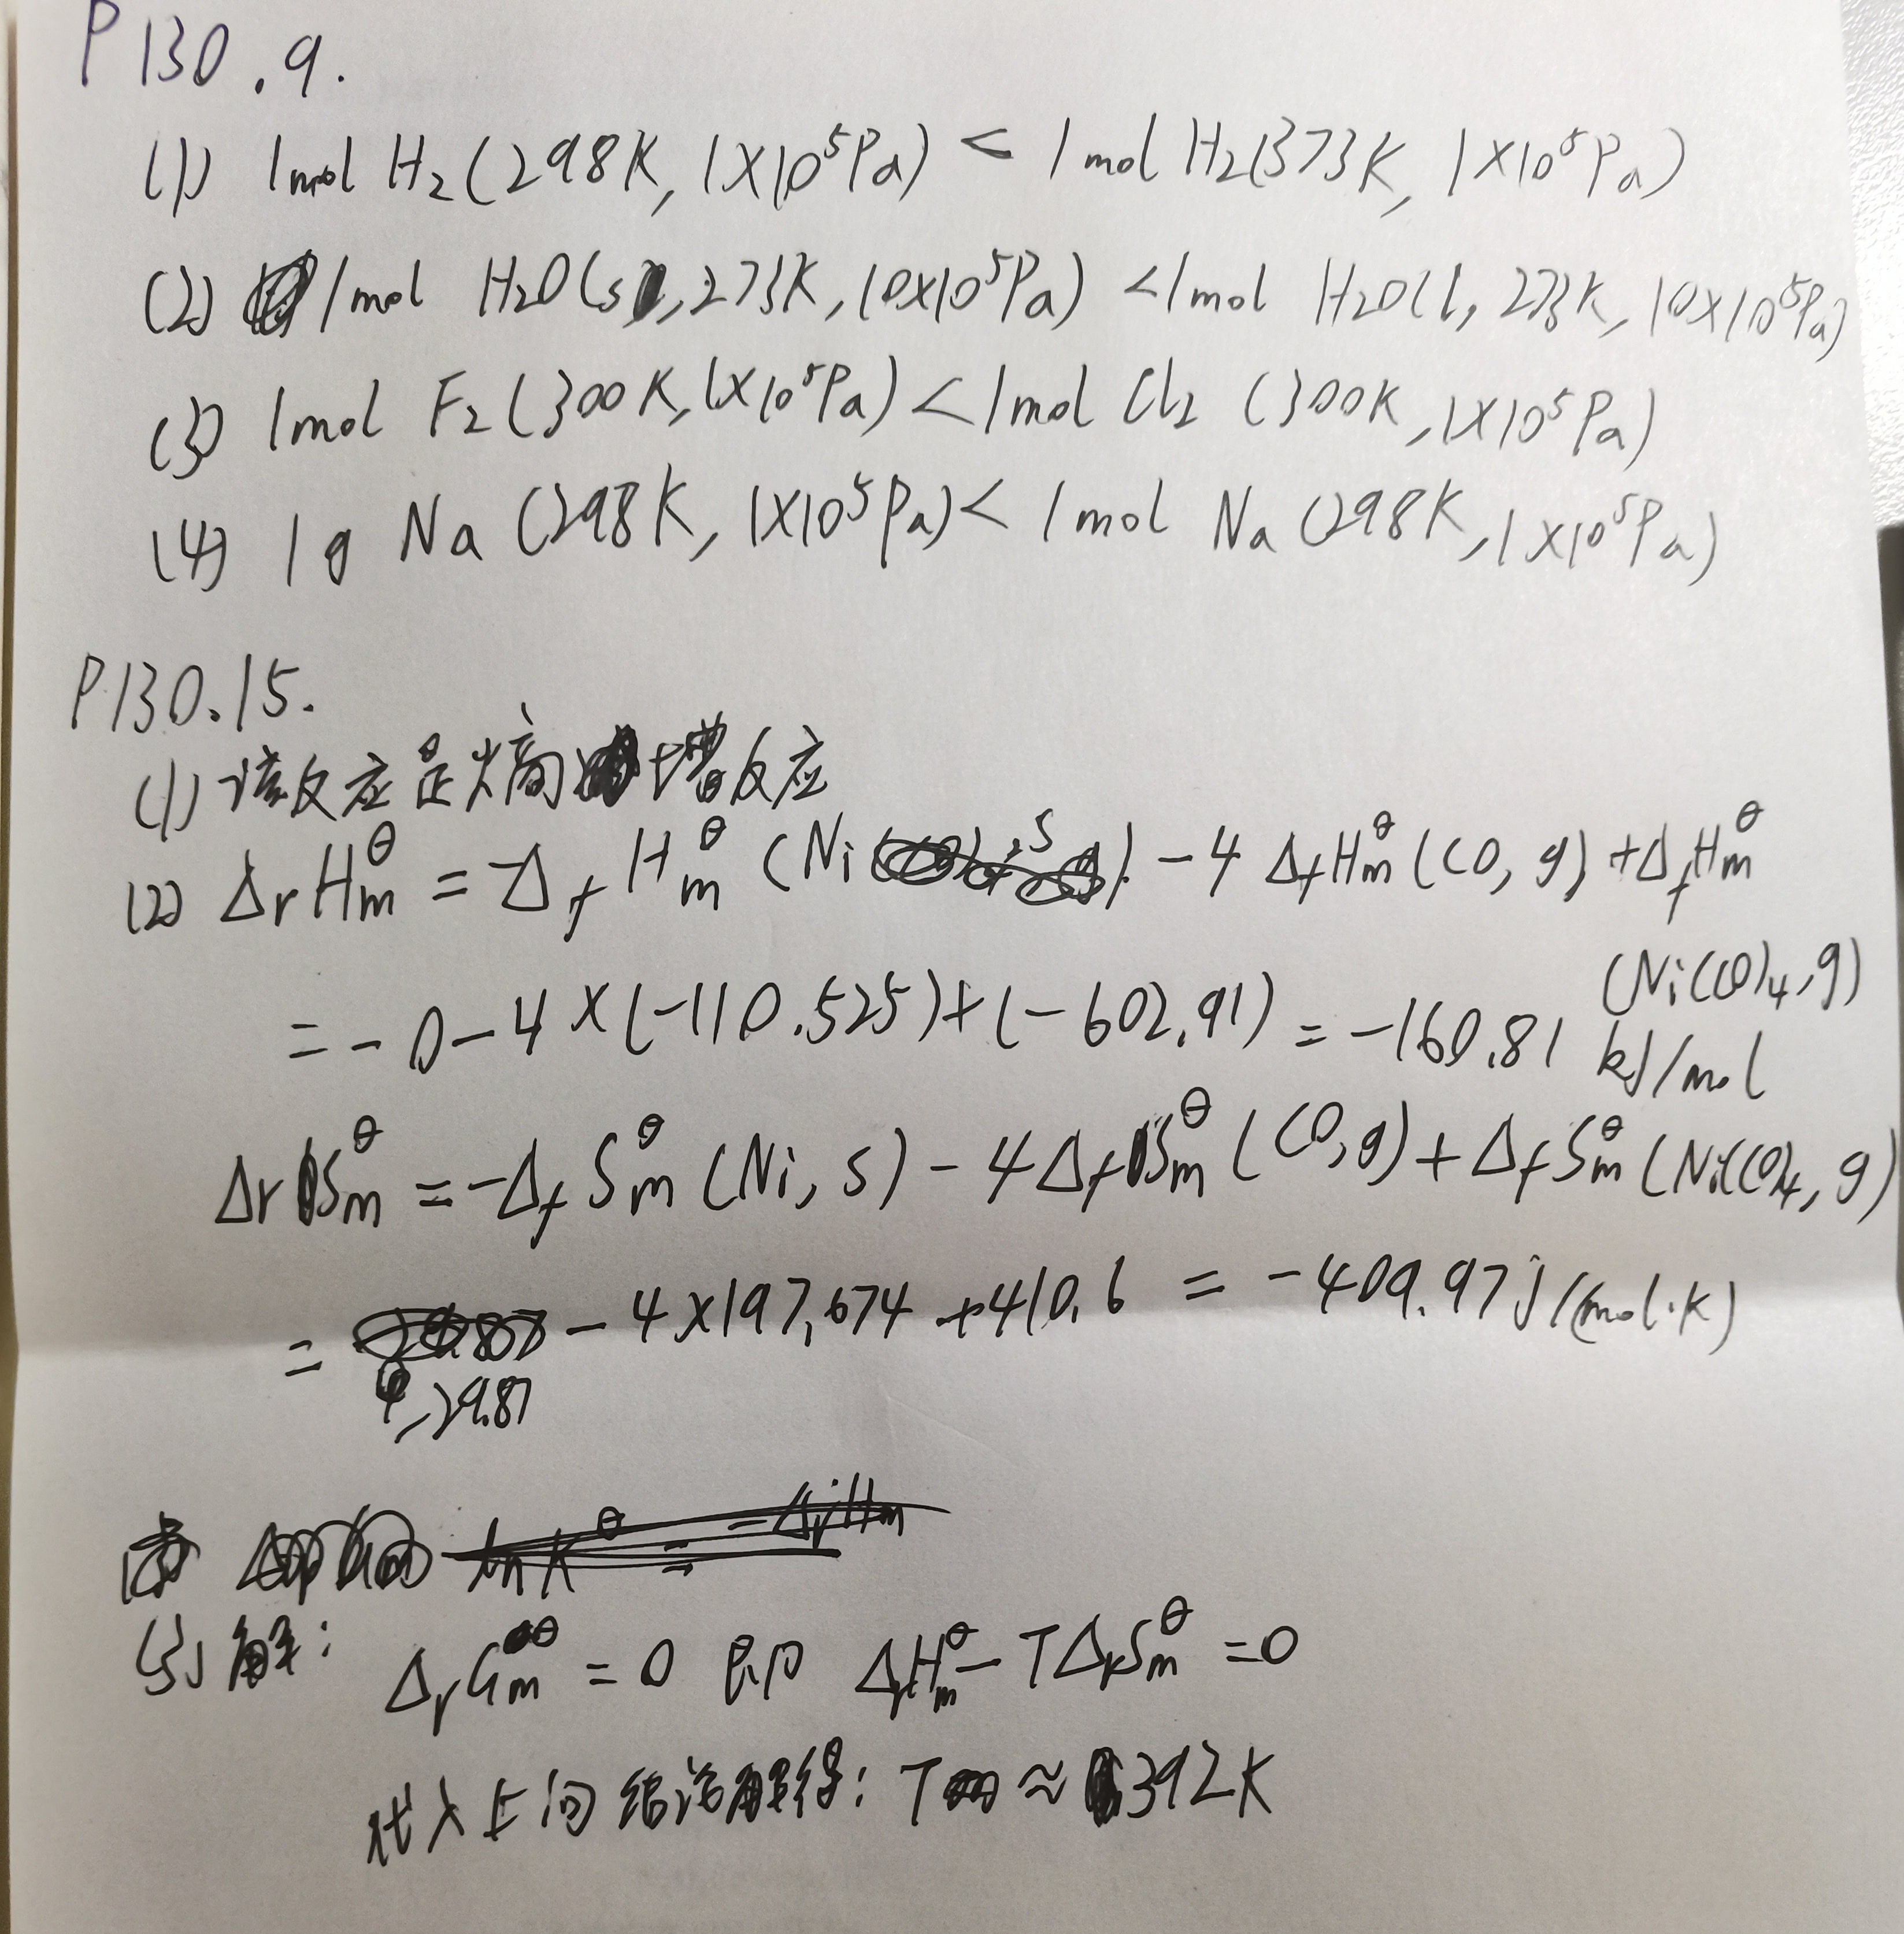 P130.9.
(1) 1mol H₂(298K, 1×10⁵Pa) < 1mol H₂(373K, 1×10⁵Pa)
(2) 1mol H₂O(s, 273K, 10×10⁵Pa) <1mol H₂O(l, 273K, 10×10⁵Pa)
(3) 1mol F₂(300K, 1×10⁵Pa) < 1mol Cl₂ (300K, 1×10⁵Pa)
(4) 1g Na (298K, 1×10⁵Pa) < 1mol Na (298K, 1×10⁵Pa)
P130.15.
(1) 该反应是熵增反应
(2) ΔrHm^θ = -ΔfHm^θ (Ni, s) - 4 ΔfHm^θ (CO, g) + ΔfHm^θ
(Ni(CO)₄, g)
= -0-4×(-110.525)+(-602.91) = -160.81 kJ/mol
ΔrSm^θ = -ΔfSm^θ (Ni, s) - 4ΔfSm^θ (CO, g) + ΔfSm^θ (Ni(CO)₄, g)
= -29.87 - 4×197.674 + 410.6 = -409.97 J/(mol·K)
(3) 解: ΔrGm^θ = 0 即 ΔrHm^θ - TΔrSm^θ = 0
代入上问结论解得: T ≈ 392K